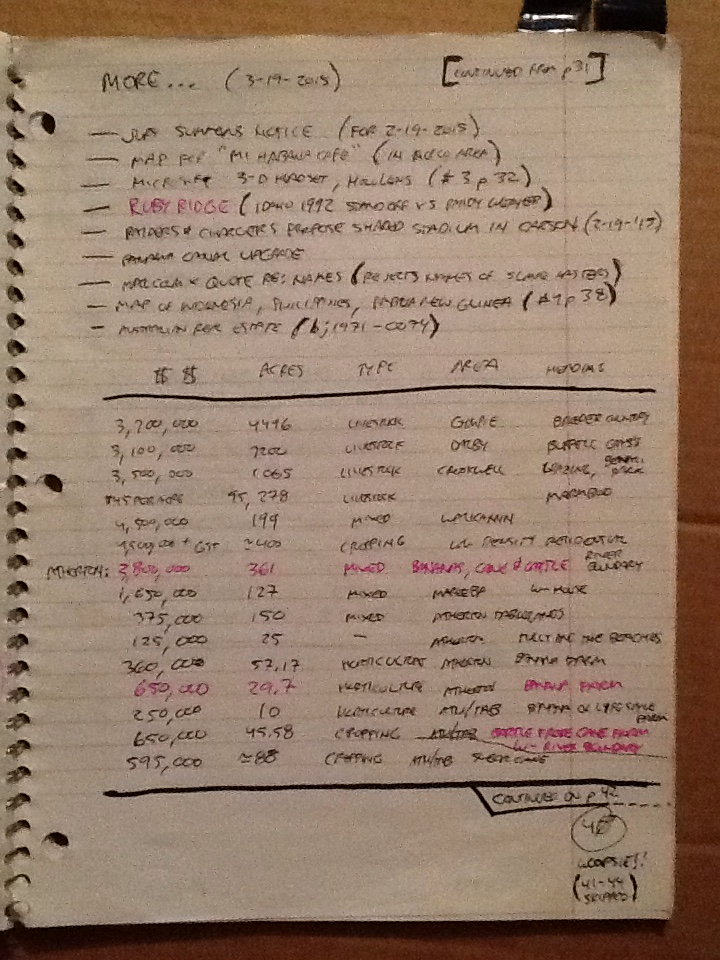 MORE... (3-19-2015) [CONTINUED FROM p31]
— JURY SUMMONS NOTICE (FOR 2-19-2015)
— MAP FOR "MI HABANA CAFE" (IN AREA)
— MICROSOFT 3-D HEADSET, HOLOLENS (#3 p 32)
— RUBY RIDGE (IDAHO 1992 STANDOFF VS RANDY WEAVER)
— RAIDERS & CHARGERS PROPOSE SHARED STADIUM IN CARSON (2-19-'15)
— PANAMA CANAL UPGRADE
— MALCOLM X QUOTE RE: NAMES (REJECTS NAMES OF SLAVE MASTERS)
— MAP OF INDONESIA, PHILIPPINES, PAPUA NEW GUINEA (#1 p 38)
— AUSTRALIAN REAL ESTATE (b; 1971-0074)
$$ ACRES TYPE AREA HEADING
3,700,000 4496 LIVESTOCK GYMPIE BREEDER COUNTRY
3,100,000 7200 LIVESTOCK DALBY BUFFELL GRASS
3,500,000 1065 LIVESTOCK GRAZING,
PER ACRE 95,278 LIVESTOCK
4,500,000 199 MIXED WALKAMIN
+ GST ≈400 CROPPING LOW DENSITY RESIDENTIAL
ATHERTON: 3,800,000 361 MIXED BANANAS, CANE & CATTLE RIVER BOUNDARY
1,650,000 127 MIXED MAREEBA W- HOUSE
375,000 150 MIXED ATHERTON TABLELANDS
125,000 25 — ATHERTON THE BEACHES
360,000 52.17 HORTICULTURE ATHERTON BANANA FARM
650,000 29.7 HORTICULTURE ATHERTON BANANA FARM
250,000 10 HORTICULTURE ATH/TAB BANANA OR LIFESTYLE FARM
650,000 45.58 CROPPING ATH/TAB CANE FARM
W- RIVER BOUNDARY
595,000 ≈88 CROPPING ATH/TAB SUGAR CANE
CONTINUED ON p 42
45
WOOPSIES!
(41-44
SKIPPED)